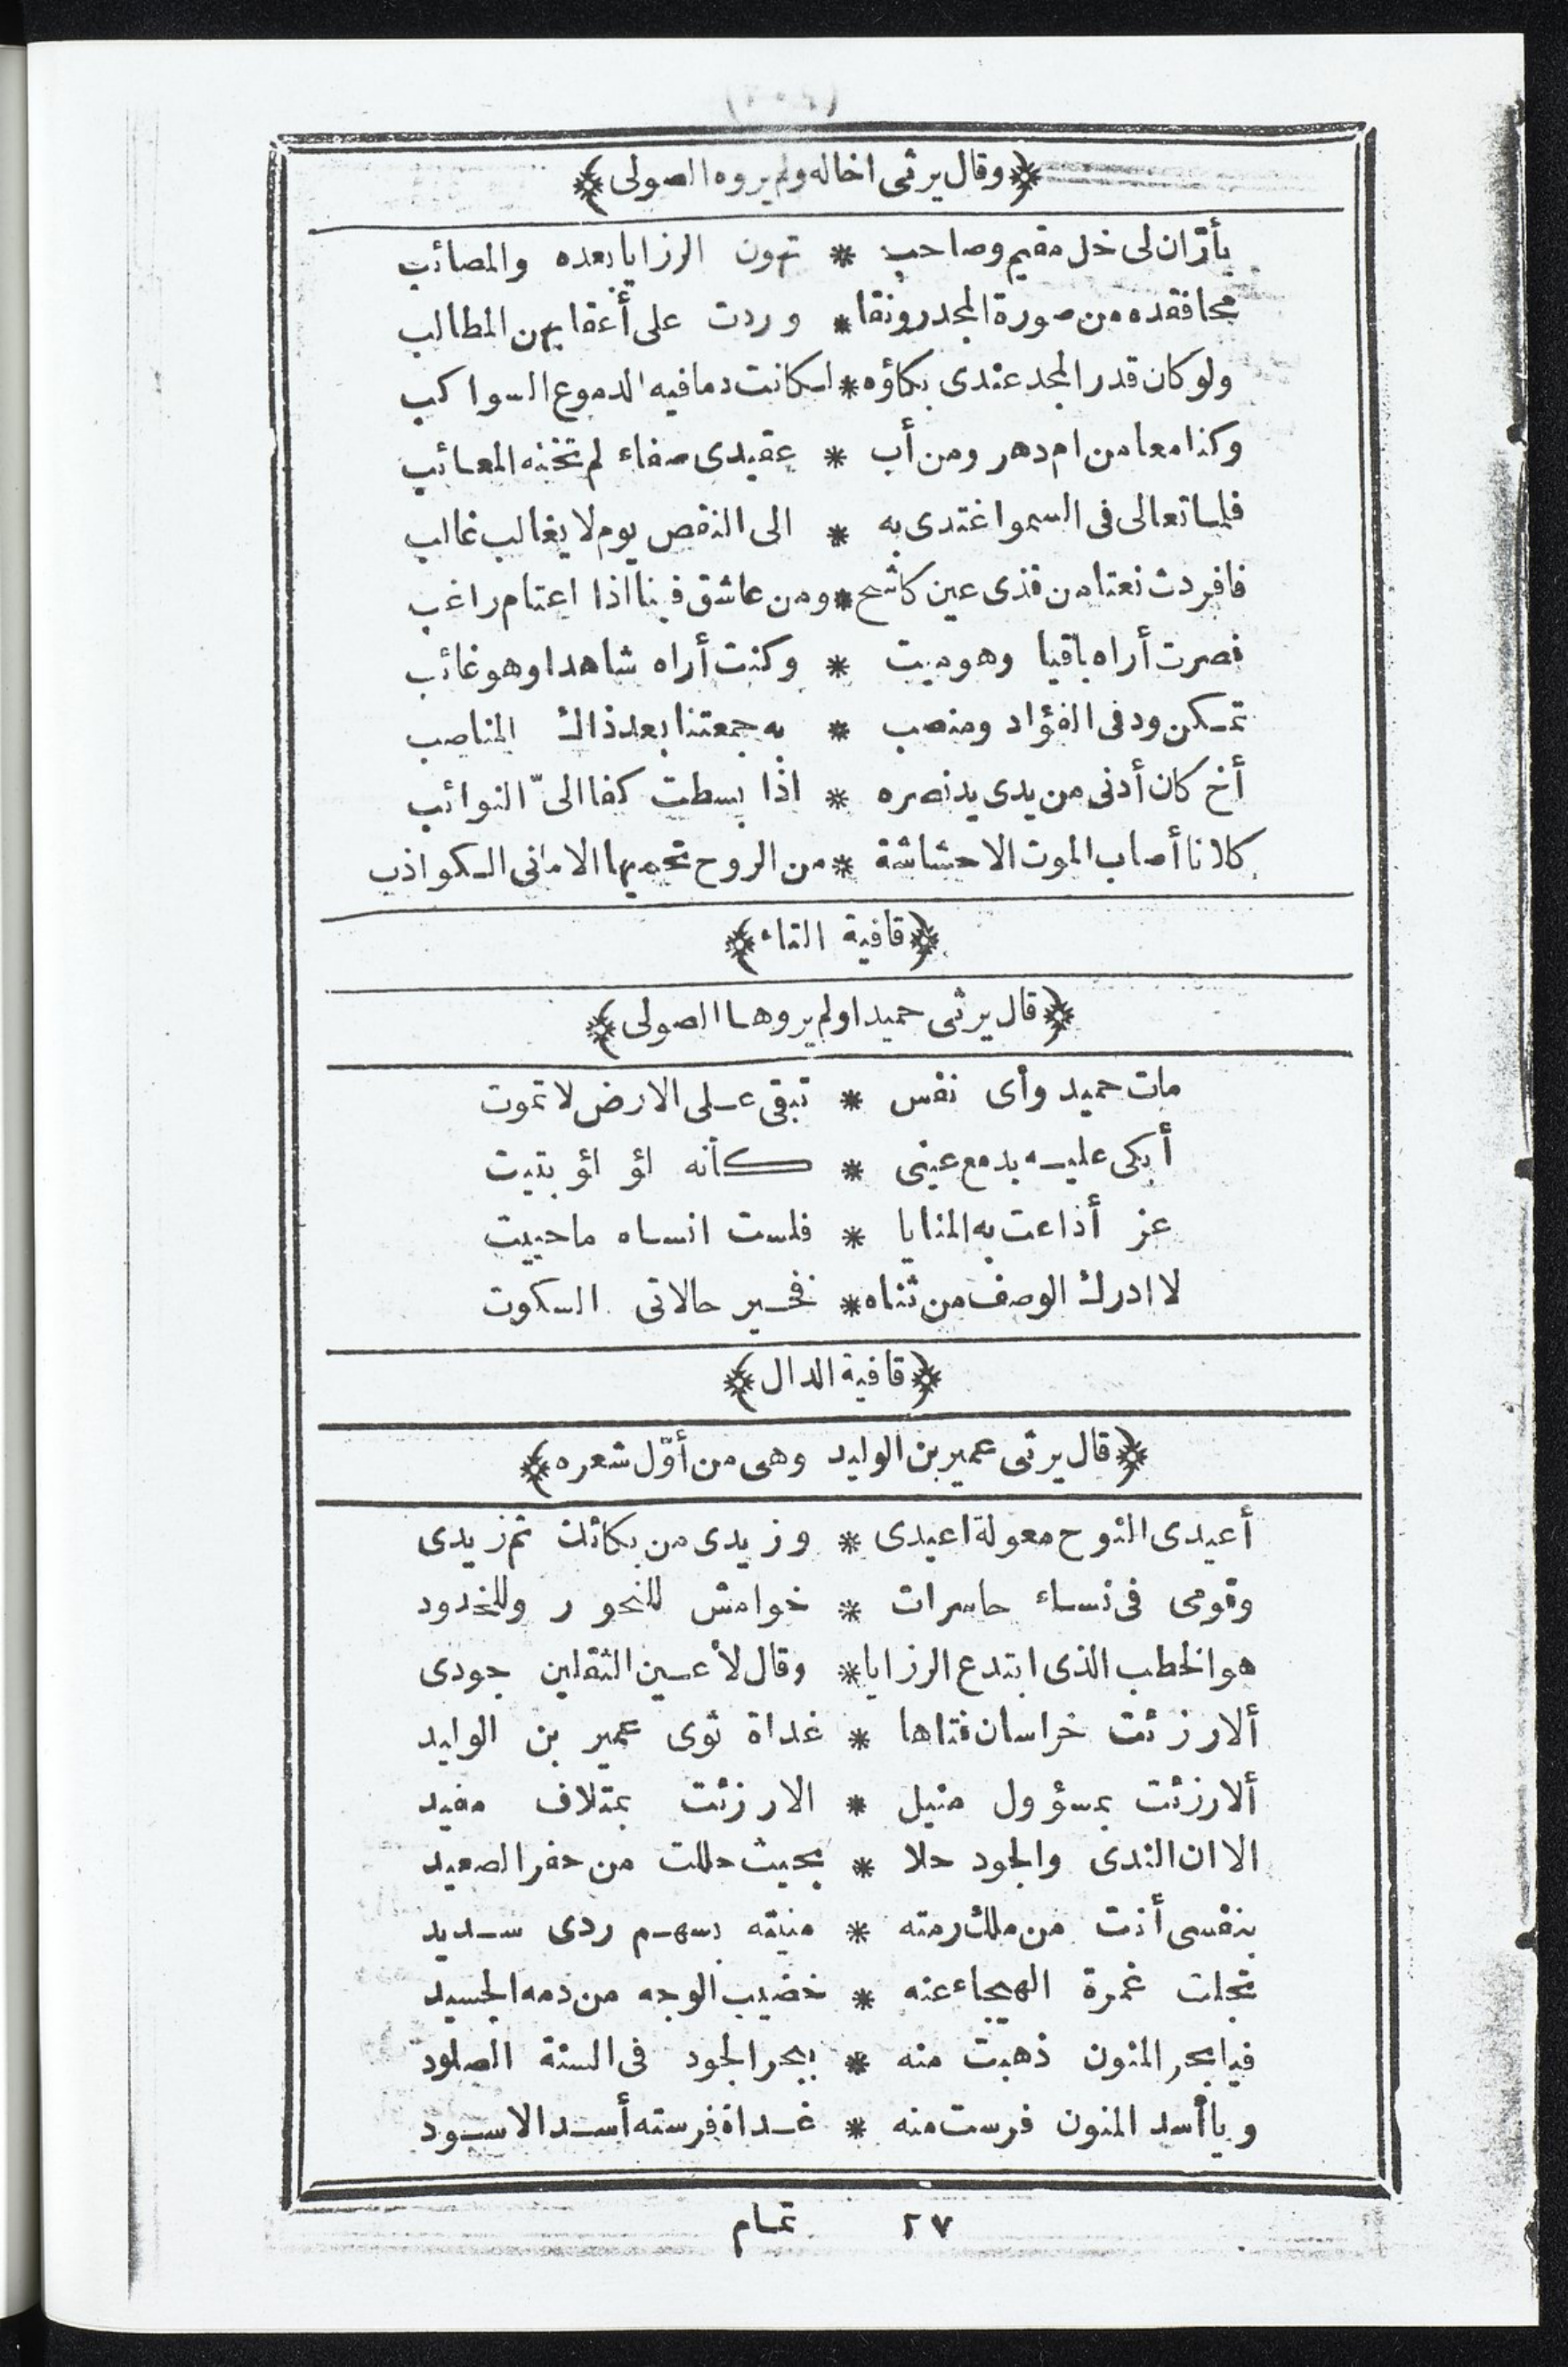 ﴿وقال يرثى اخاله ولم يروه الصولى﴾
بأرّان لى خل مقيم وصاحب * تهون الرزايا بعده والمصائب
محا فقده من صورة المجد رونقا * وردت على أعقابهن المطالب
ولو كان قدر المجد عندى بكاؤه * لكانت دما فيه الدموع السواكب
وكنا معا من ام دهر ومن أب * عقيدى صفاء لم تخنه المعائب
فلما تعالى فى السموا غتدى به * الى النقص يوم لا يغالب غالب
فافردت نعتا من قذى عين كاشح * ومن عاشق فينا اذا اعتام راغب
فصرت أراه باقيا وهو ميت * وكنت أراه شاهدا وهو غائب
تمكن ود فى الفؤاد ومنصب * به جمعتنا بعد ذاك المناصب
أخ كان أدنى من يدى يد نصره * اذا بسطت كفا الىّ النوائب
كلانا أصاب الموت الا حشاشة * من الروح تحميها الامانى الكواذب
﴿قافية التاء﴾
﴿قال يرثى حميدا ولم يروها الصولى﴾
مات حميد وأى نفس * تبقى على الارض لا تموت
أبكى عليه بدمع عينى * كأنه لؤلؤ بتيت
عز أذاعت به المنايا * فلست انساه ما حييت
لا ادرك الوصف من ثناه * فخير حالاتى السكوت
﴿قافية الدال﴾
﴿قال يرثى عمير بن الوليد وهى من أوّل شعره﴾
أعيدى النوح معولة اعيدى * وزيدى من بكائك ثم زيدى
وقومى فى نساء حاسرات * خوامش للنحور وللخدود
هو الخطب الذى ابتدع الرزايا * وقال لأعين الثقلين جودى
ألا رزئت خراسان فتاها * غداة ثوى عمير بن الوليد
ألا رزئت بمسؤول منيل * الا رزئت بمتلاف مفيد
الا ان الندى والجود حلا * بحيث حللت من حفر الصعيد
بنفسى أنت من ملك رمته * منيته بسهم ردى سديد
تجلت غمرة الهيجاء عنه * خضيب الوجه من دمه الجسيد
فيا بحر المنون ذهبت منه * ببحر الجود فى السنة الصلود
ويا أسد المنون فرست منه * غداة فرسته أسد الاسود
٢٧ تمام